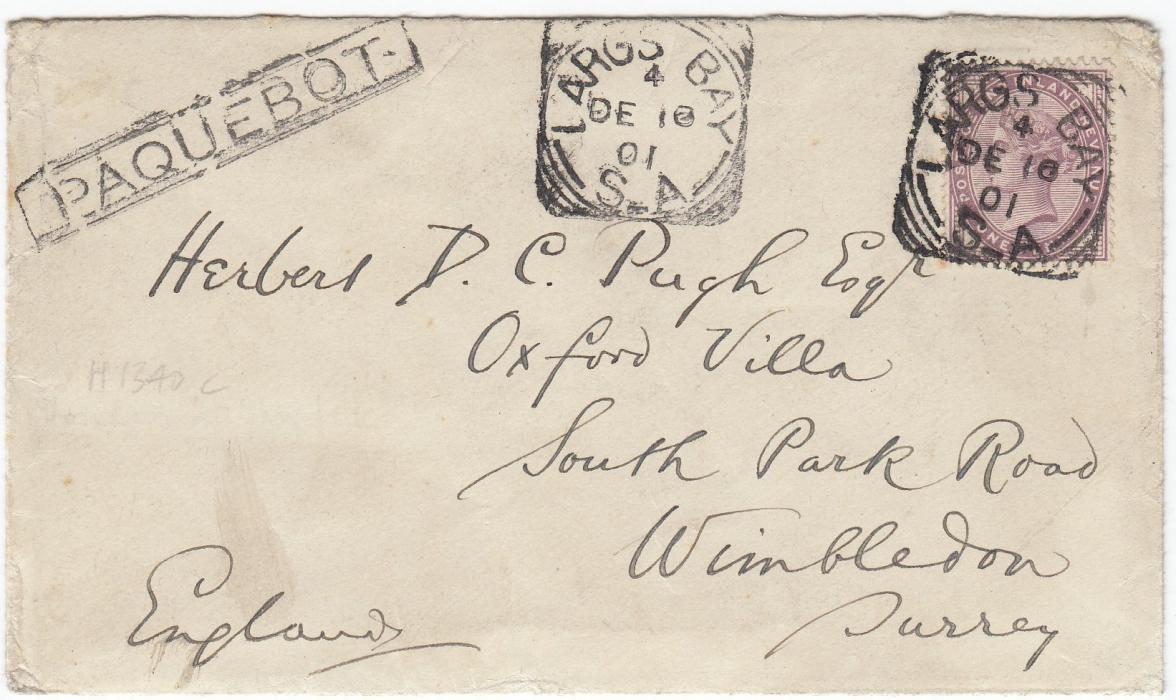 PAQUEBOT
LARGS BAY
4
DE 18
01
S-A
LARGS BAY
4
DE 18
01
S-A
Herbert D. C. Pugh Esqr
Oxford Villa
South Park Road
Wimbledon
Surrey
England